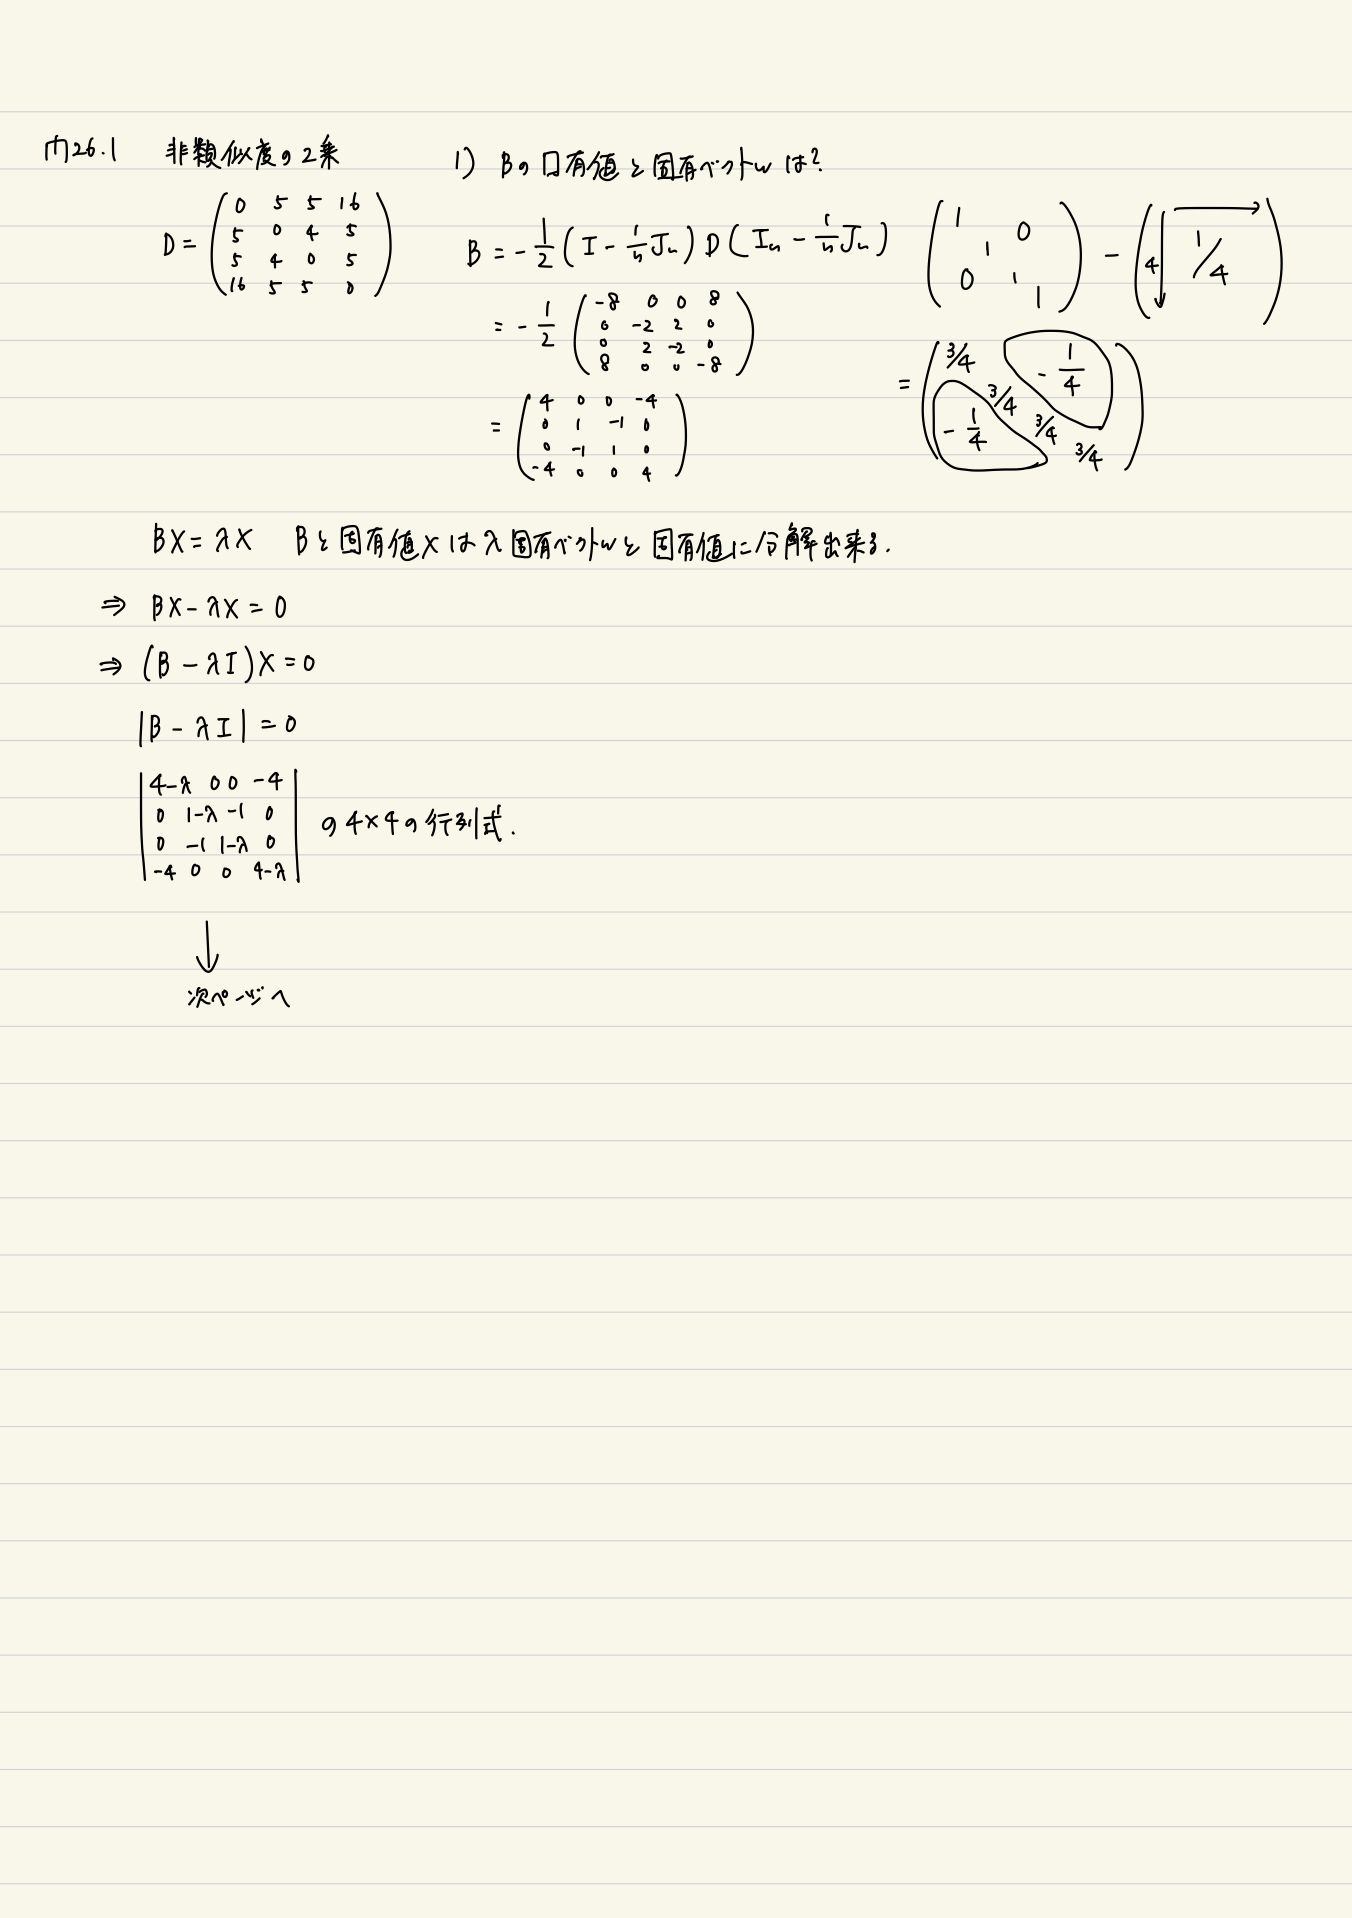 問26.1 非類似度の2乗
D = ( 0 5 5 16
5 0 4 5
5 4 0 5
16 5 5 0 )
1) Bの口有値と固有ベクトルは?
B = - 1/2 ( I - 1/n Jn ) D ( In - 1/n Jn )
= - 1/2 ( -8 0 0 8
0 -2 2 0
0 2 -2 0
8 0 0 -8 )
= ( 4 0 0 -4
0 1 -1 0
0 -1 1 0
-4 0 0 4 )
( 1 0
1
0 1
1 ) - ( 4 1/4 )
= ( 3/4 - 1/4
3/4
- 1/4 3/4
3/4 )
BX = λX Bと固有値Xはλ固有ベクトルと固有値に分解出来る.
⇒ BX - λX = 0
⇒ (B - λI)X = 0
|B - λI| = 0
| 4-λ 0 0 -4
0 1-λ -1 0
0 -1 1-λ 0
-4 0 0 4-λ | の4×4の行列式.
↓
次ページへ